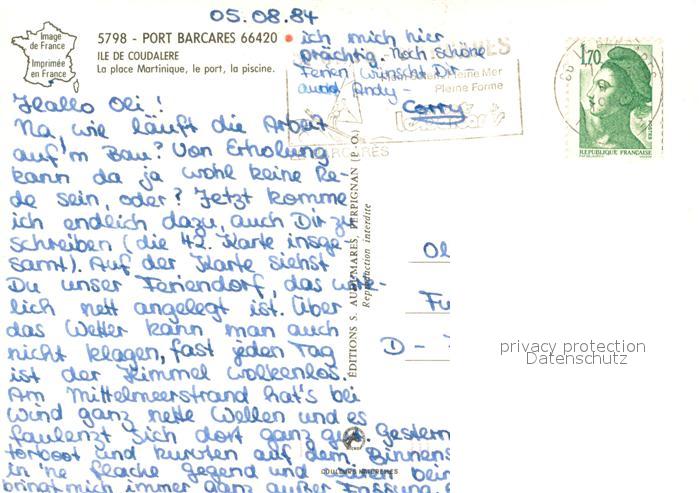 05.08.84
Image
de France
Imprimée
en France
5798 - PORT BARCARES 66420
ILE DE COUDALERE
La place Martinique, le port, la piscine.
ich mich hier
prächtig. Noch schöne
Ferien wünscht Dir
Andy-
Corry
Pleine Mer
Pleine Forme
1,70
POSTES
REPUBLIQUE FRANÇAISE
Hallo Oli!
Na, wie läuft die Arbeit
auf'm Bau? Von Erholung
kann da ja wohl keine Re-
de sein, oder? Jetzt komme
ich endlich dazu, auch Dir zu
schreiben (die 42. Karte insge-
samt). Auf der Karte siehst
Du unser Feriendorf, das wirk-
lich nett angelegt ist. Über
das Wetter kann man auch
nicht klagen, fast jeden Tag
ist der Himmel wolkenlos.
Am Mittelmeerstrand hat's bei
Wind ganz nette Wellen und es
faulenzt sich dort ganz gut. Gestern
torboot und kurvten auf dem Binnens
in 'ne flache Gegend und waren bein
bringt mich immer ganz außer Fassung,
EDITIONS S. AUDUMARES, PERPIGNAN (P.-O.)
Reproduction interdite
COULEURS NATURELLES
Ol
Fu
D -
privacy protection
Datenschutz